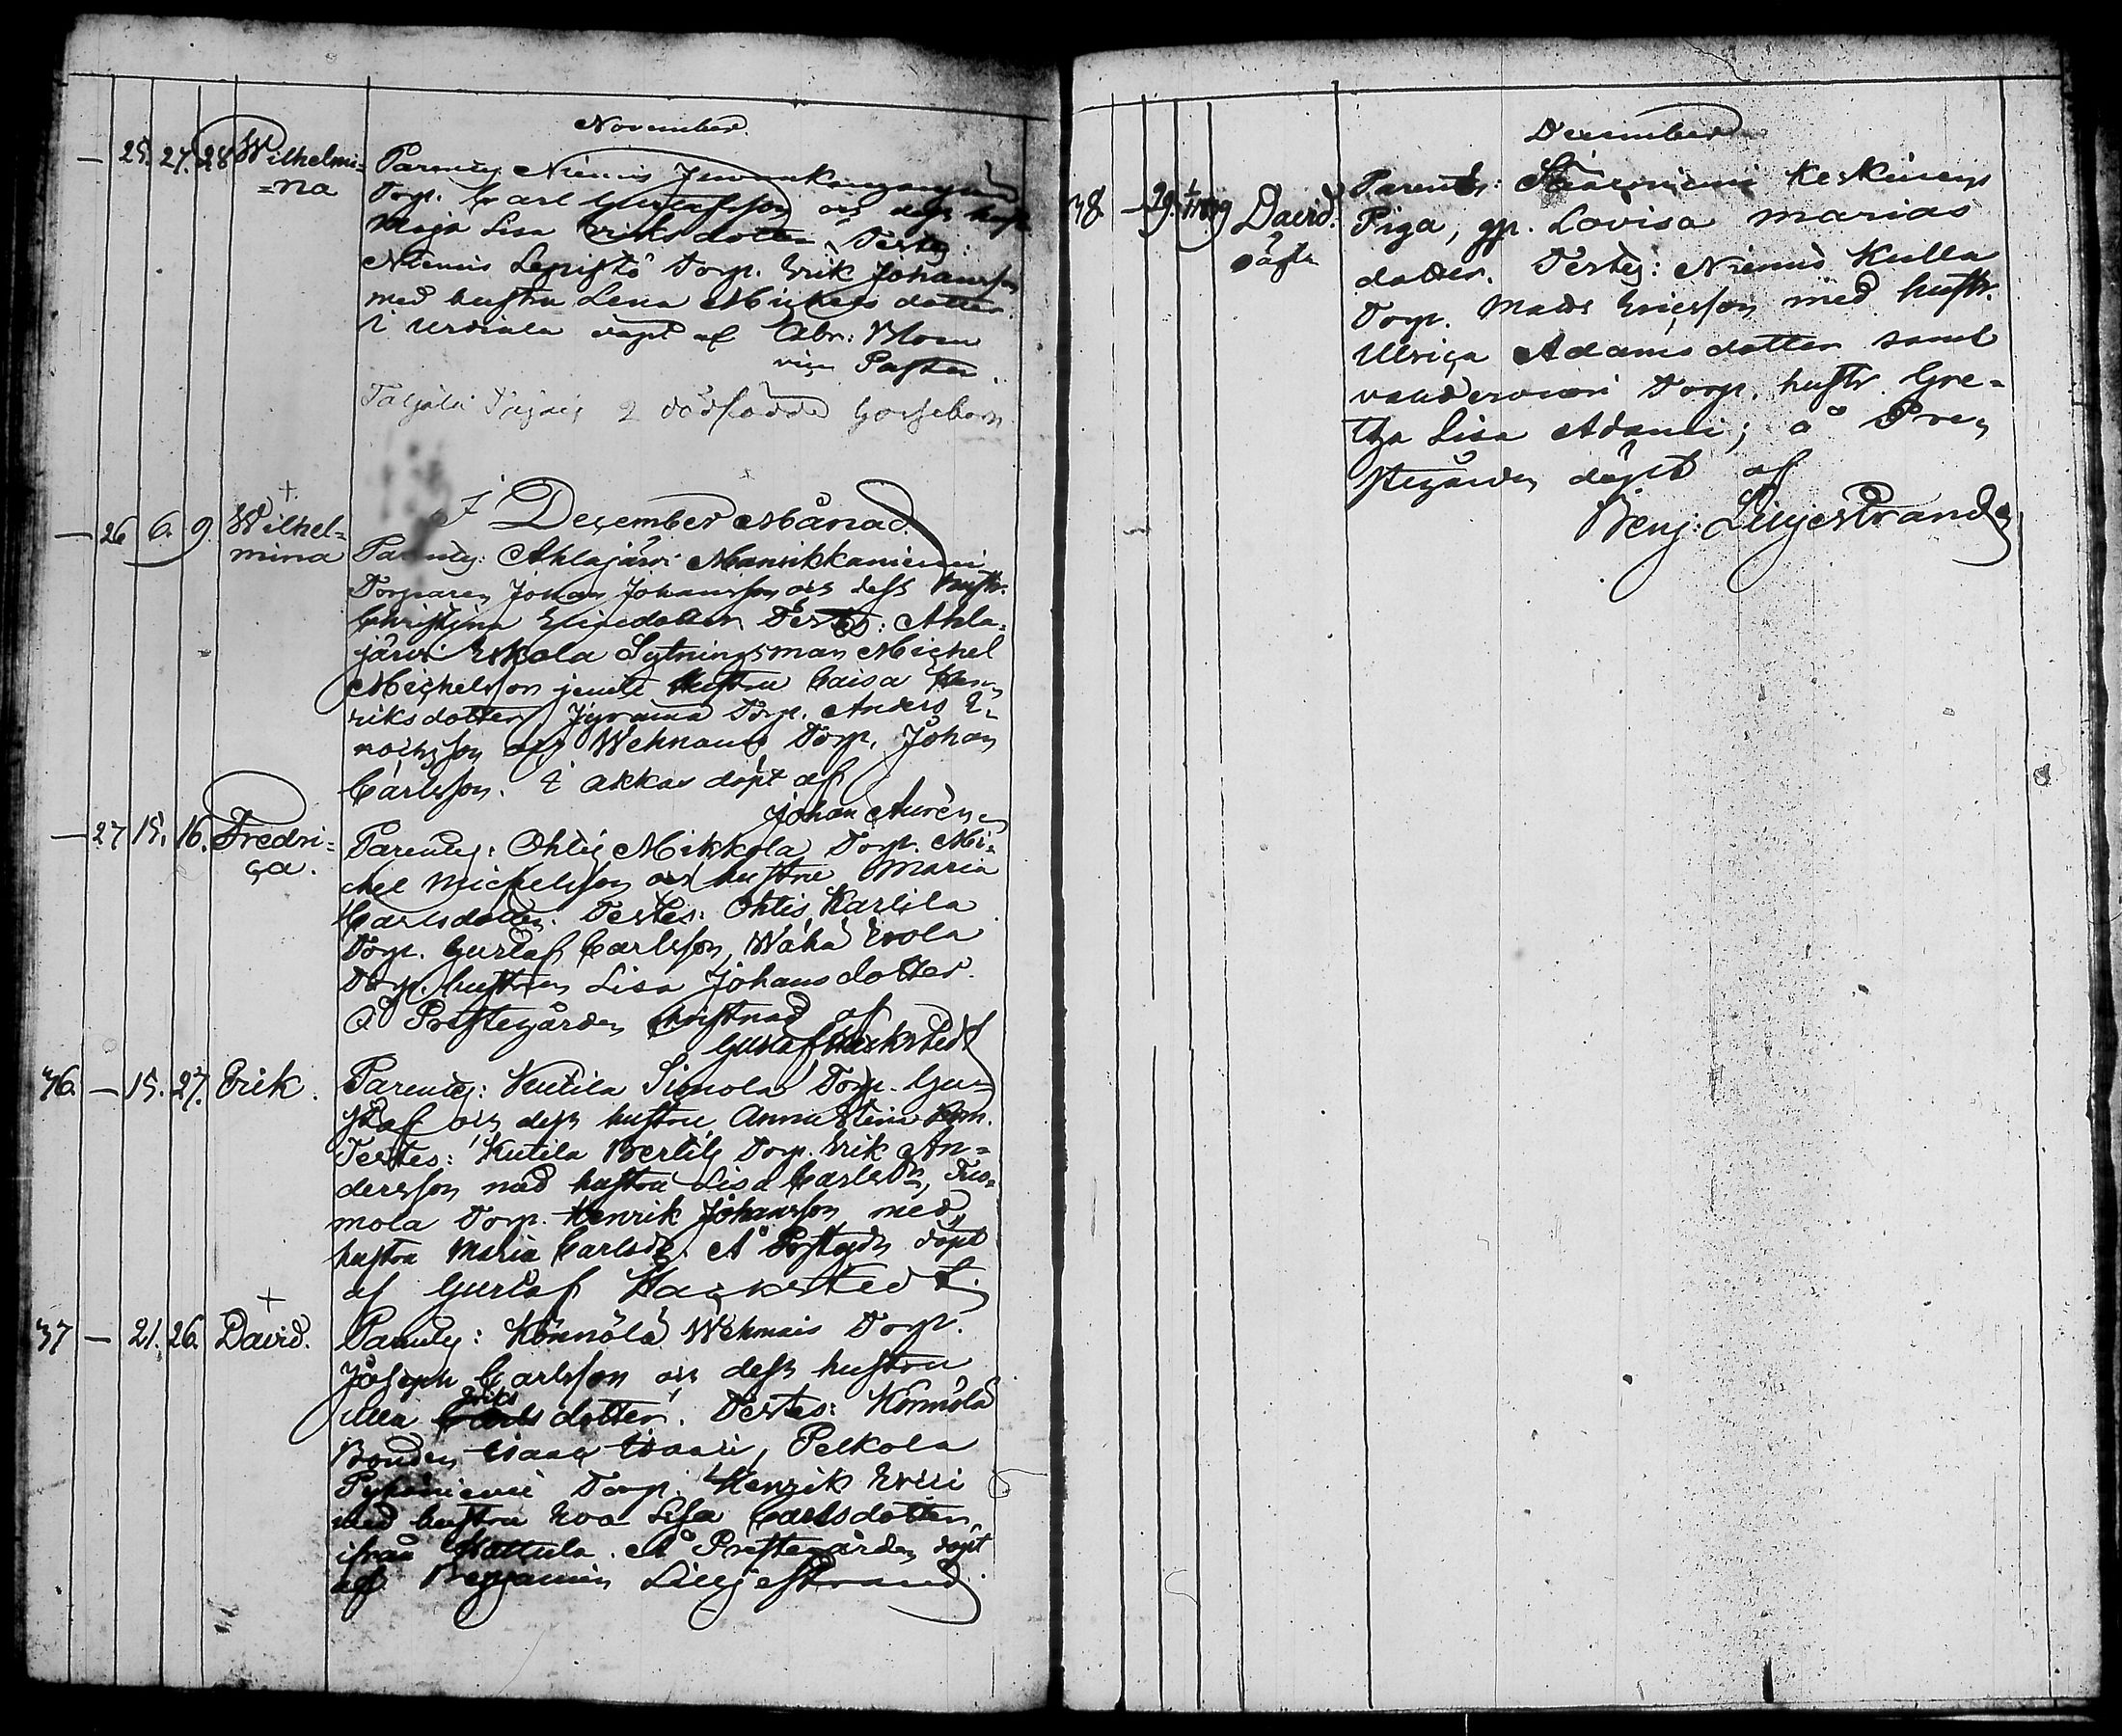 November.
— 25. 27. 28 Wilhelmi=
=na
Parentes Niemis
Torp. Carl Gustafsson och dess hust.
Maja Lisa Eriksdotter. Testes:
Niemis Lepistö Torp. Erik Johansson
med hustru Lena Mickelsdotter.
i Urdiala döpt af Abr: Blom
vice Pastor.
2 dödfödde Gossebarn
I December Månad.
— 26 6. 9. + Wilhel=
mina
Parentes: Ahlajärvi Mansikkaniemi
Torparen Johan Johansson och dess hustr.
Christina Testes: Ahla=
järvi Eskola Sytningsman Michel
Michelsson jemte hustru Caisa Hen=
riksdotter, Torp. Anders E=
nochsson och Wehnaus Torp. Johan
Carlsson. i Akkas döpt af
Johan Aurén
— 27 15. 16. Fredri=
ca.
Parentes: Ohtis Mikkola Torp. Mi=
chel Michelsson och hustru Maria
Carlsdotter. Testes: Ohtis Karlila
Torp. Gustaf Carlsson, Wähä Erola
Torp. hustrun Lisa Johansdotter.
Å Prestegården christnad af
Gustaf Hackstedt
36. — 15. 27. Erik.
Parentes: Kutila Simola Torp. Gu=
staf och dess hustru Anna Stina
Testes: Kutila Bertils Torp. Erik An=
dersson med hustru Lisa Carlsdr,
mola Torp. Henrik Johansson med
hustru Maria Carlsdr. Å döpt
af Gustaf Hackstedt.
37 — 21. 26. + David.
Parentes: Könnölä Wehmais Torp.
Joseph Carlsson och dess hustru
Ulla Eriks dotter. Testes: Könnölä
Bonden Isaac Isaaci, Pelkola
Pyhäniemi Torp. Henrik Erici
med hustru Eva Lisa Carlsdotter
ifrån Hattula. Å Prestegården döpt
af Benjamin Lilljestrand
December
38. — 29. David.
oäkta
Parentes: Keskinens
Piga, gp. Lovisa Marias
dotter. Testes: Niemis Kulla
Torp. Mats Ericsson med hustr.
Ulrica Adamsdotter samt
Torp. hustr. Gre=
tha Lisa Adami; å Pre=
stegården döpt af
Benj: Lilljestrand